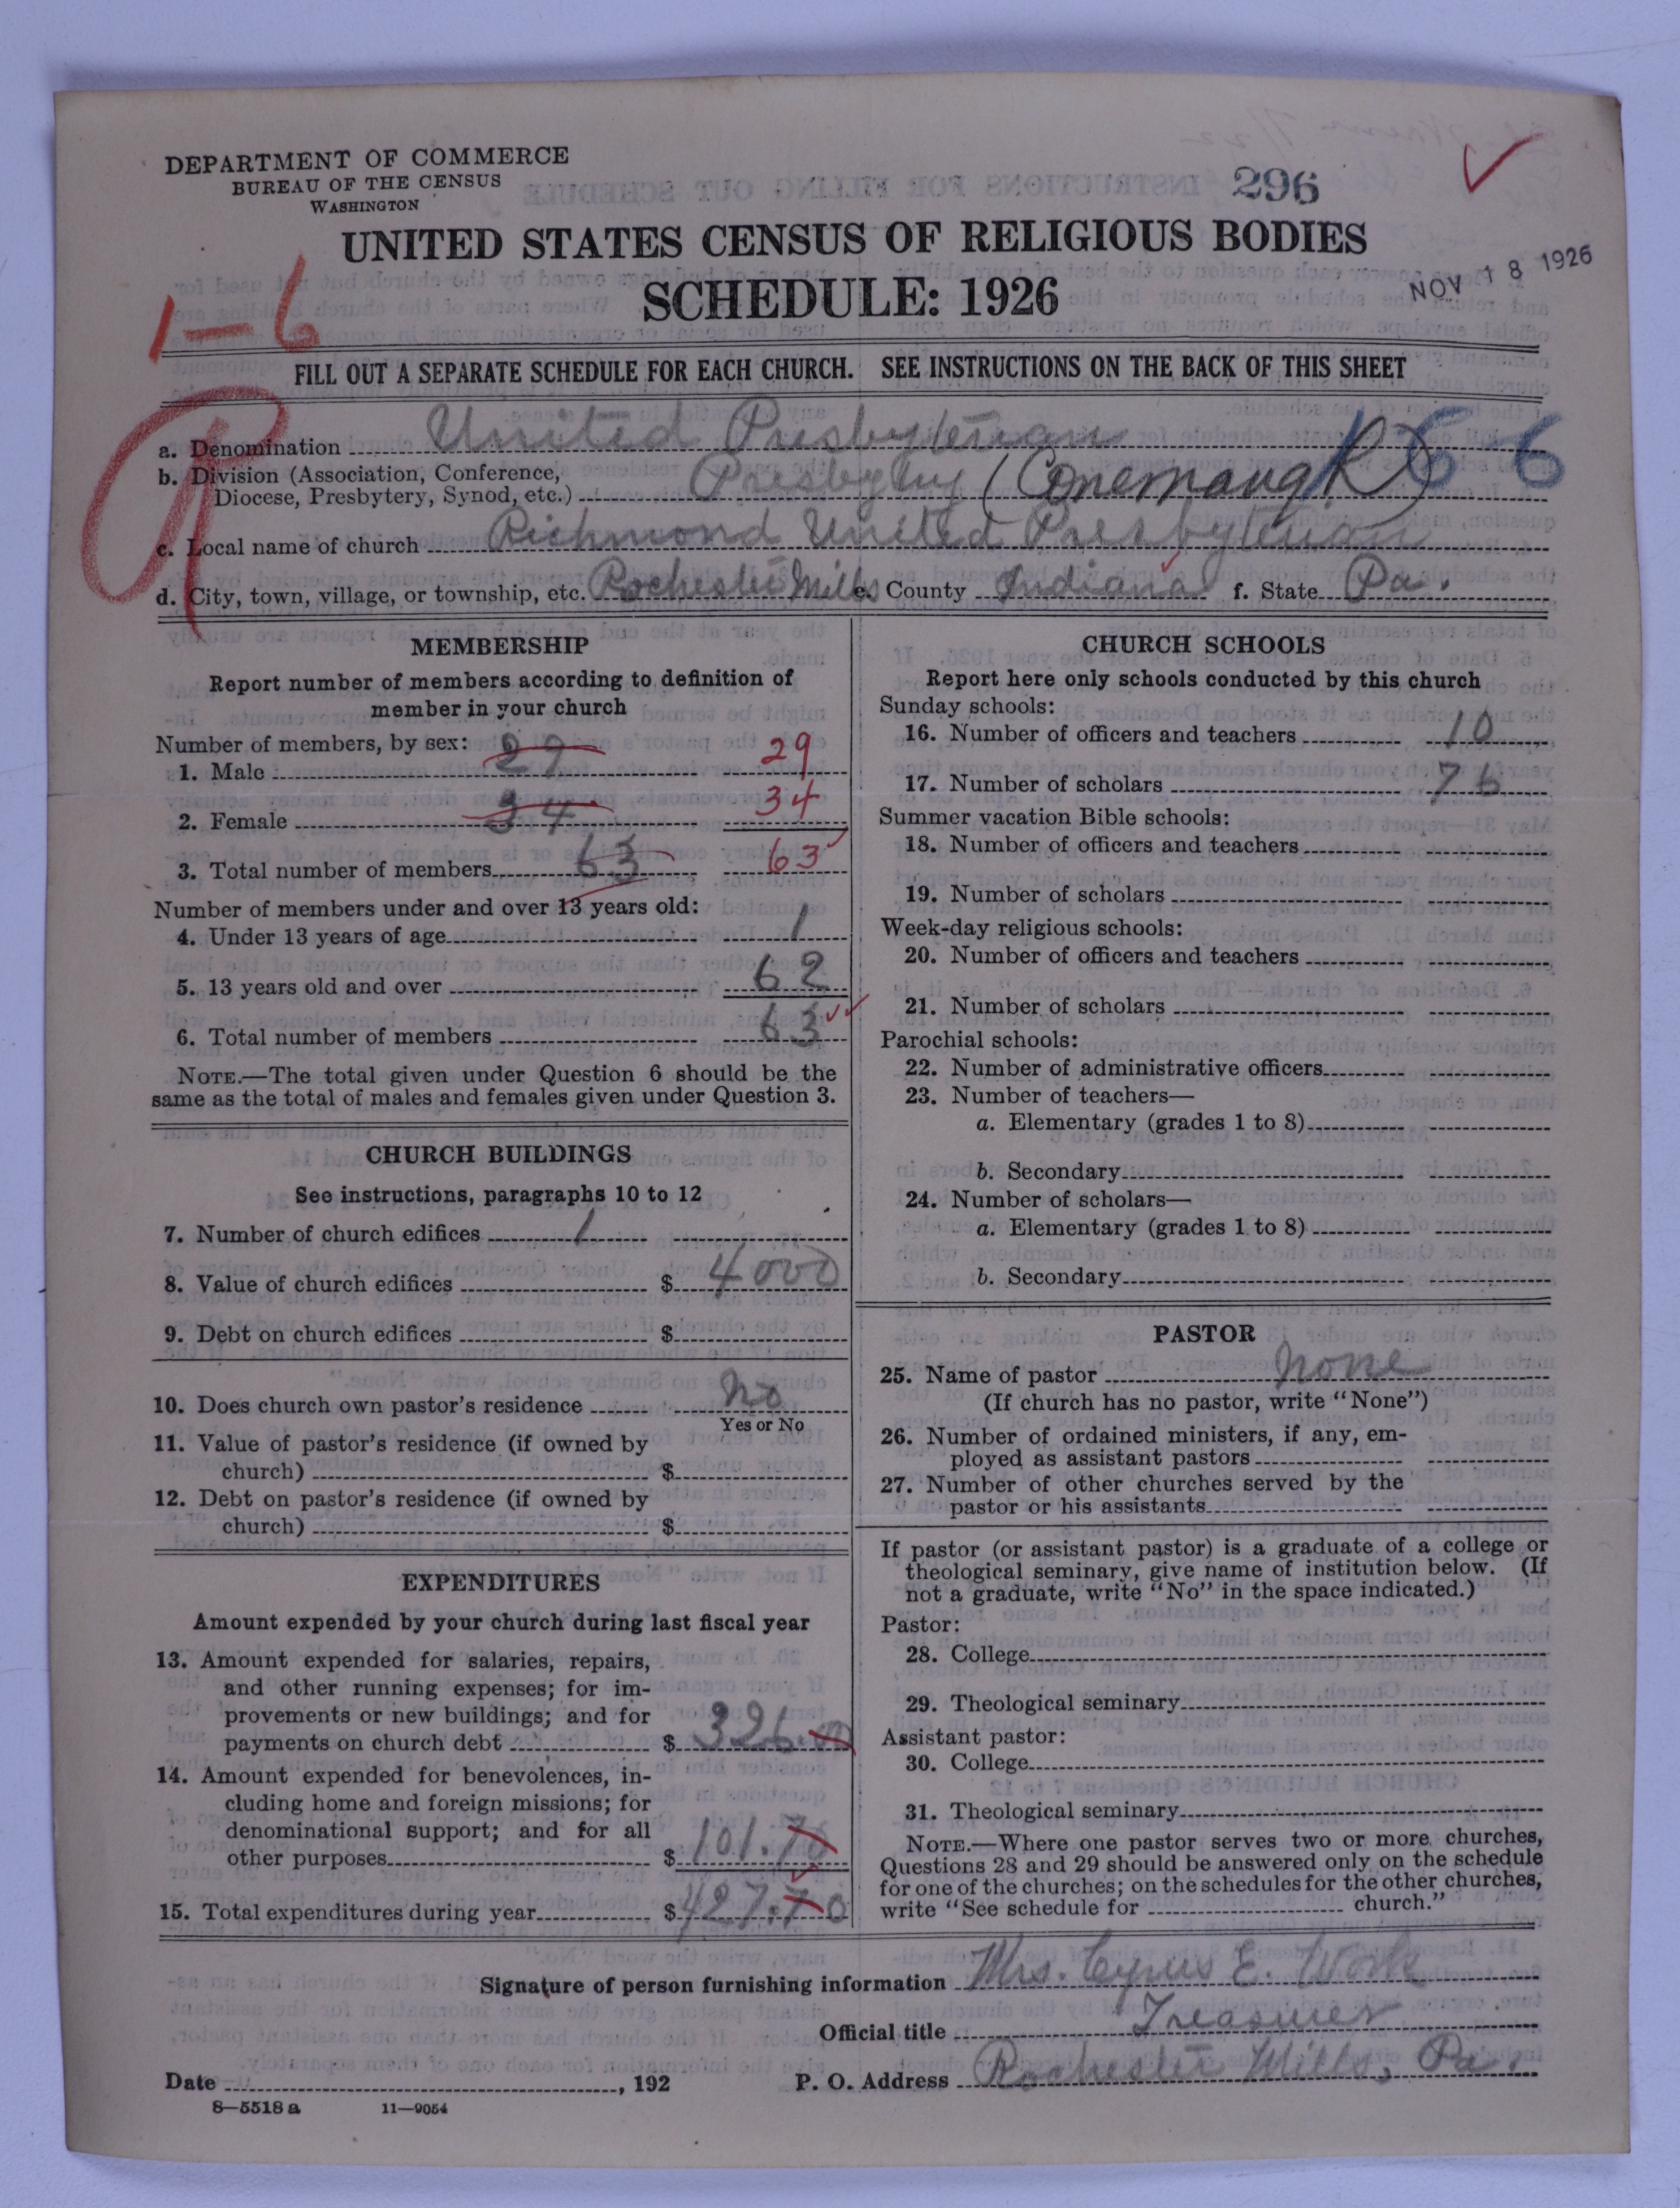 DEPARTMENT OF COMMERCE
BUREAU OF THE CENSUS
WASHINGTON
296
UNITED STATES CENSUS OF RELIGIOUS BODIES
SCHEDULE: 1926
NOV 18 1926
1-6
FILL OUT A SEPARATE SCHEDULE FOR EACH CHURCH. SEE INSTRUCTIONS ON THE BACK OF THIS SHEET
a. Denomination United Presbyterian
b. Division (Association, Conference,
Diocese, Presbytery, Synod, etc.) Presbytery (Conemaugh)
166
c. Local name of church Richmond United Presbyterian
d. City, town, village, or township, etc. Rochester Mills e. County Indiana f. State Pa.
MEMBERSHIP
Report number of members according to definition of
member in your church
Number of members, by sex:
1. Male 29 29
2. Female 34 34
3. Total number of members 63 63
Number of members under and over 13 years old:
4. Under 13 years of age 1
5. 13 years old and over 62
6. Total number of members 63
NOTE.—The total given under Question 6 should be the
same as the total of males and females given under Question 3.
CHURCH BUILDINGS
See instructions, paragraphs 10 to 12
7. Number of church edifices 1
8. Value of church edifices $ 4000
9. Debt on church edifices $
10. Does church own pastor's residence No
Yes or No
11. Value of pastor's residence (if owned by
church) $
12. Debt on pastor's residence (if owned by
church) $
EXPENDITURES
Amount expended by your church during last fiscal year
13. Amount expended for salaries, repairs,
and other running expenses; for im-
provements or new buildings; and for
payments on church debt $ 326.00
14. Amount expended for benevolences, in-
cluding home and foreign missions; for
denominational support; and for all
other purposes $ 101.70
15. Total expenditures during year $ 427.70
CHURCH SCHOOLS
Report here only schools conducted by this church
Sunday schools:
16. Number of officers and teachers 10
17. Number of scholars 76
Summer vacation Bible schools:
18. Number of officers and teachers
19. Number of scholars
Week-day religious schools:
20. Number of officers and teachers
21. Number of scholars
Parochial schools:
22. Number of administrative officers
23. Number of teachers—
a. Elementary (grades 1 to 8)
b. Secondary
24. Number of scholars—
a. Elementary (grades 1 to 8)
b. Secondary
PASTOR
25. Name of pastor None
(If church has no pastor, write "None")
26. Number of ordained ministers, if any, em-
ployed as assistant pastors
27. Number of other churches served by the
pastor or his assistants
If pastor (or assistant pastor) is a graduate of a college or
theological seminary, give name of institution below. (If
not a graduate, write "No" in the space indicated.)
Pastor:
28. College
29. Theological seminary
Assistant pastor:
30. College
31. Theological seminary
NOTE.—Where one pastor serves two or more churches,
Questions 28 and 29 should be answered only on the schedule
for one of the churches; on the schedules for the other churches,
write "See schedule for church."
Signature of person furnishing information Mrs. Cyrus E. Work
Official title Treasurer
Date , 192 P. O. Address Rochester Mills, Pa.
8—5518a 11—9054